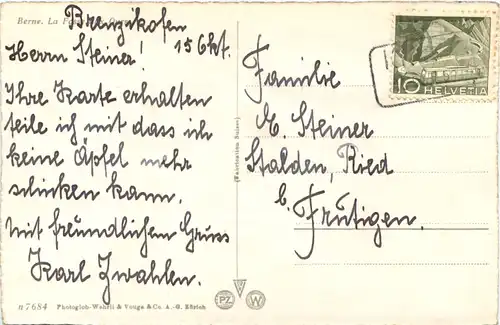 Berne. La
Brenzikofen
15 Okt.
Herrn Steiner!
Ihre Karte erhalten
teile ich mit dass ich
keine Äpfel mehr
schicken kann.
Mit freundlichem Gruss
Karl Zwahlen.
n 7684 Photoglob-Wehrli & Vouga & Co. A.-G. Zürich
PZ W
(Fabrication Suisse)
10 HELVETIA
Familie
Steiner
Stalden, Ried
b. Frutigen.